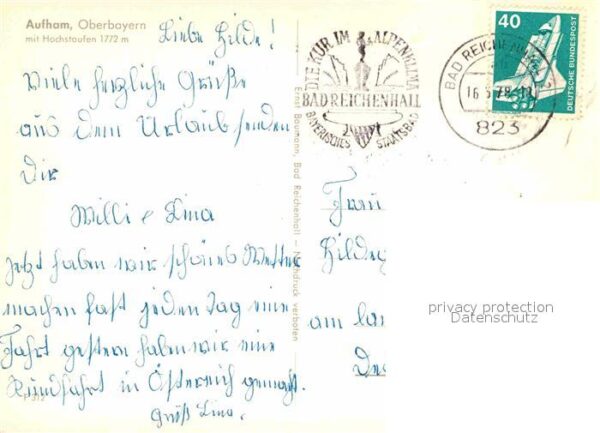 Aufham, Oberbayern
mit Hochstaufen 1772 m
Liebe Hilde!
Viele herzliche Grüße
aus dem Urlaub senden
Dir
Willi & Lina
Jetzt haben wir schönes Wetter
machen fast jeden Tag eine
Fahrt gestern haben wir eine
Rundfahrt in Österreich gemacht.
Gruß Lina.
Ernst Baumann, Bad Reichenhall — Nachdruck verboten
DIE KUR IM ALPENKLIMA
BAD REICHENHALL
BAYERISCHES STAATSBAD
BAD REICHENHALL
823
40
DEUTSCHE BUNDESPOST
Frau
Hildeg
am
privacy protection
Datenschutz